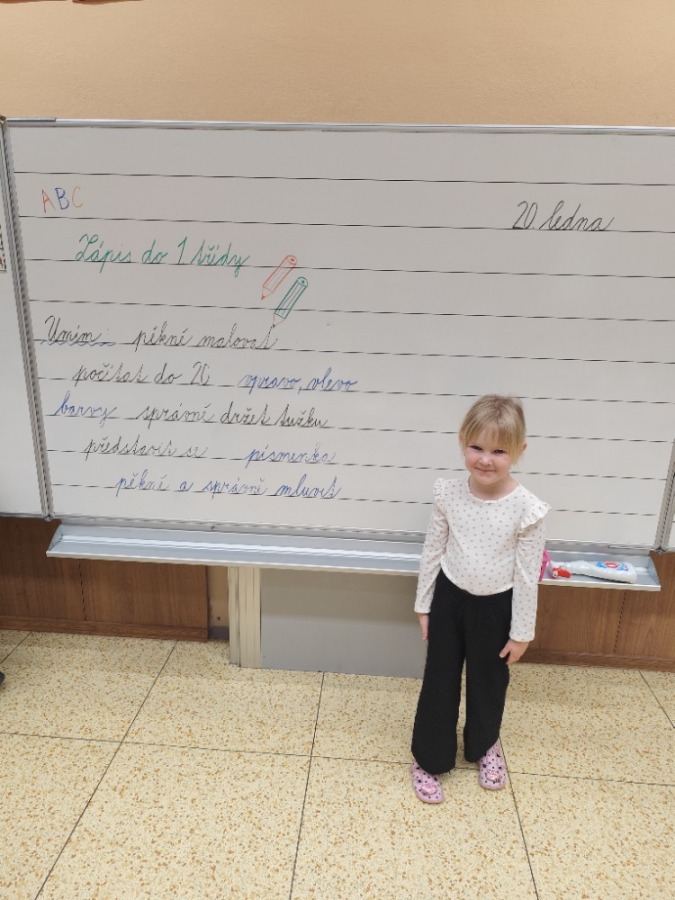 ABC
20 ledna
Zápis do 1 třídy
Umím: pěkně malovat
počítat do 20 vpravo, vlevo
barvy správně držet tužku
představit se písmenka
pěkně a správně mluvit